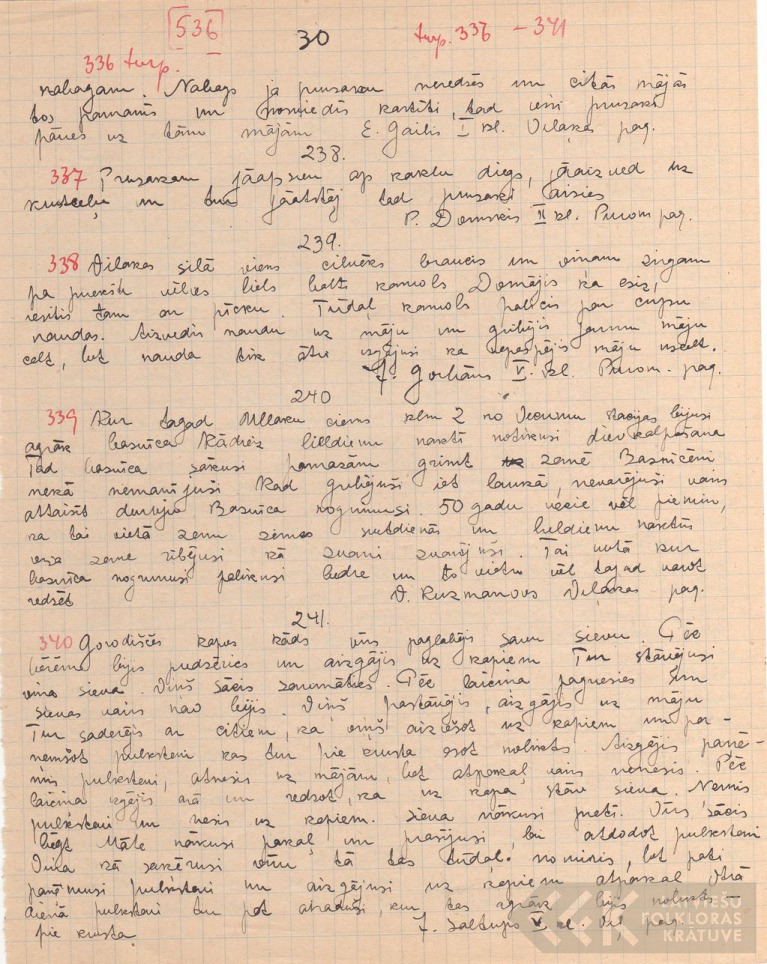 536
30
turp. 336 - 341
336 turp.
nabagam. Nabags ja prusakau neredzēs un citās mājās
tos pamanīs un nosmiedīs kastīti, tad visi prusaki
pāries uz tām mājām E. Gailis I kl. Viļakas pag.
238.
337 Prusakam jāapsien ap kaklu diegs, jāaizved uz
krustceļu un tur jāatstāj tad prusaki aisies
P. Domskis II kl. Purom pag.
239.
338 Viļakas silā viens cilvēks braucis un viņam zirgam
pa priekšu vēlies liels balts kamols Domājis ka ezis,
iesitis tam ar pīcku. Tūdaļ kamols palicis par čupu
naudas. Aizvedis naudu uz māju un gribējis jaunu māju
celt, bet nauda tik ātri izgājusi ka nepaspējis māju uzcelt.
J. Gorbāns V. kl. Purom. pag.
240
339 Kur tagad ciems klm 2 no Vecumu stacijas bijusi
agrāk basnīca Kādreiz lieldienu naktī notikusi dievkalpošana
Tad basnīca sākusi pamazām grimt zemē Baznīcēni
nekā nemanījuši Kad gribējuši iet laukā, nevarējuši vairs
attaisīt durvju Basnīca nogrimusi. 50 gadu vecie vēl piemin,
ka tai vietā zemu zemes svētdienās un lieldienu naktīs
zeme rībējusi kā zvani zvanījuši. Tai vietā kur
basnīca nogrimusi palikusi bedre un to vietu vēl tagad varot
redzēt V. Kuzmanovs Viļakas pag.
241.
340 Gorodiščēs kapos kāds vīrs paglabājis savu sievu. Pēc
bērēm bijis piedzēries un aizgājis uz kapiem Tur stāvējusi
viņa sieva. Viņš sācis sarunāties. Pēc laiciņa pagriesies un
sievas vairs nav bijis. Viņš pastāvējis, aizgājis uz māju
Tur saderējis ar citiem, ka viņš aiziešot uz kapiem un pa-
ņemšot pulksteni kas tur pie krusta esot nolikts. Aizgājis paņē-
mis pulksteni, atnesis uz mājām, bet atpakaļ vairs nenesis. Pēc
laiciņa izgājis ārā un redzot, ka uz kapa stāv sieva. Ņēmis
pulksteni un nesis uz kapiem. Sieva nākusi pretī. Vīrs sācis
bēgt Māte nākusi pakaļ un prasījusi, lai atdodot pulksteni
Viņa kā saķērusi vīru tā tas tūdaļ nomiris, bet pati
paņēmusi pulksteni un aizgājusi uz kapiem atpakaļ Otrā
dienā pulksteni tur pat atraduši, kur tas agrāk bijis nolikts –
pie krusta J. Saltups V kl. Viļ. pag.
FOLKLORAS
KRĀTUVE